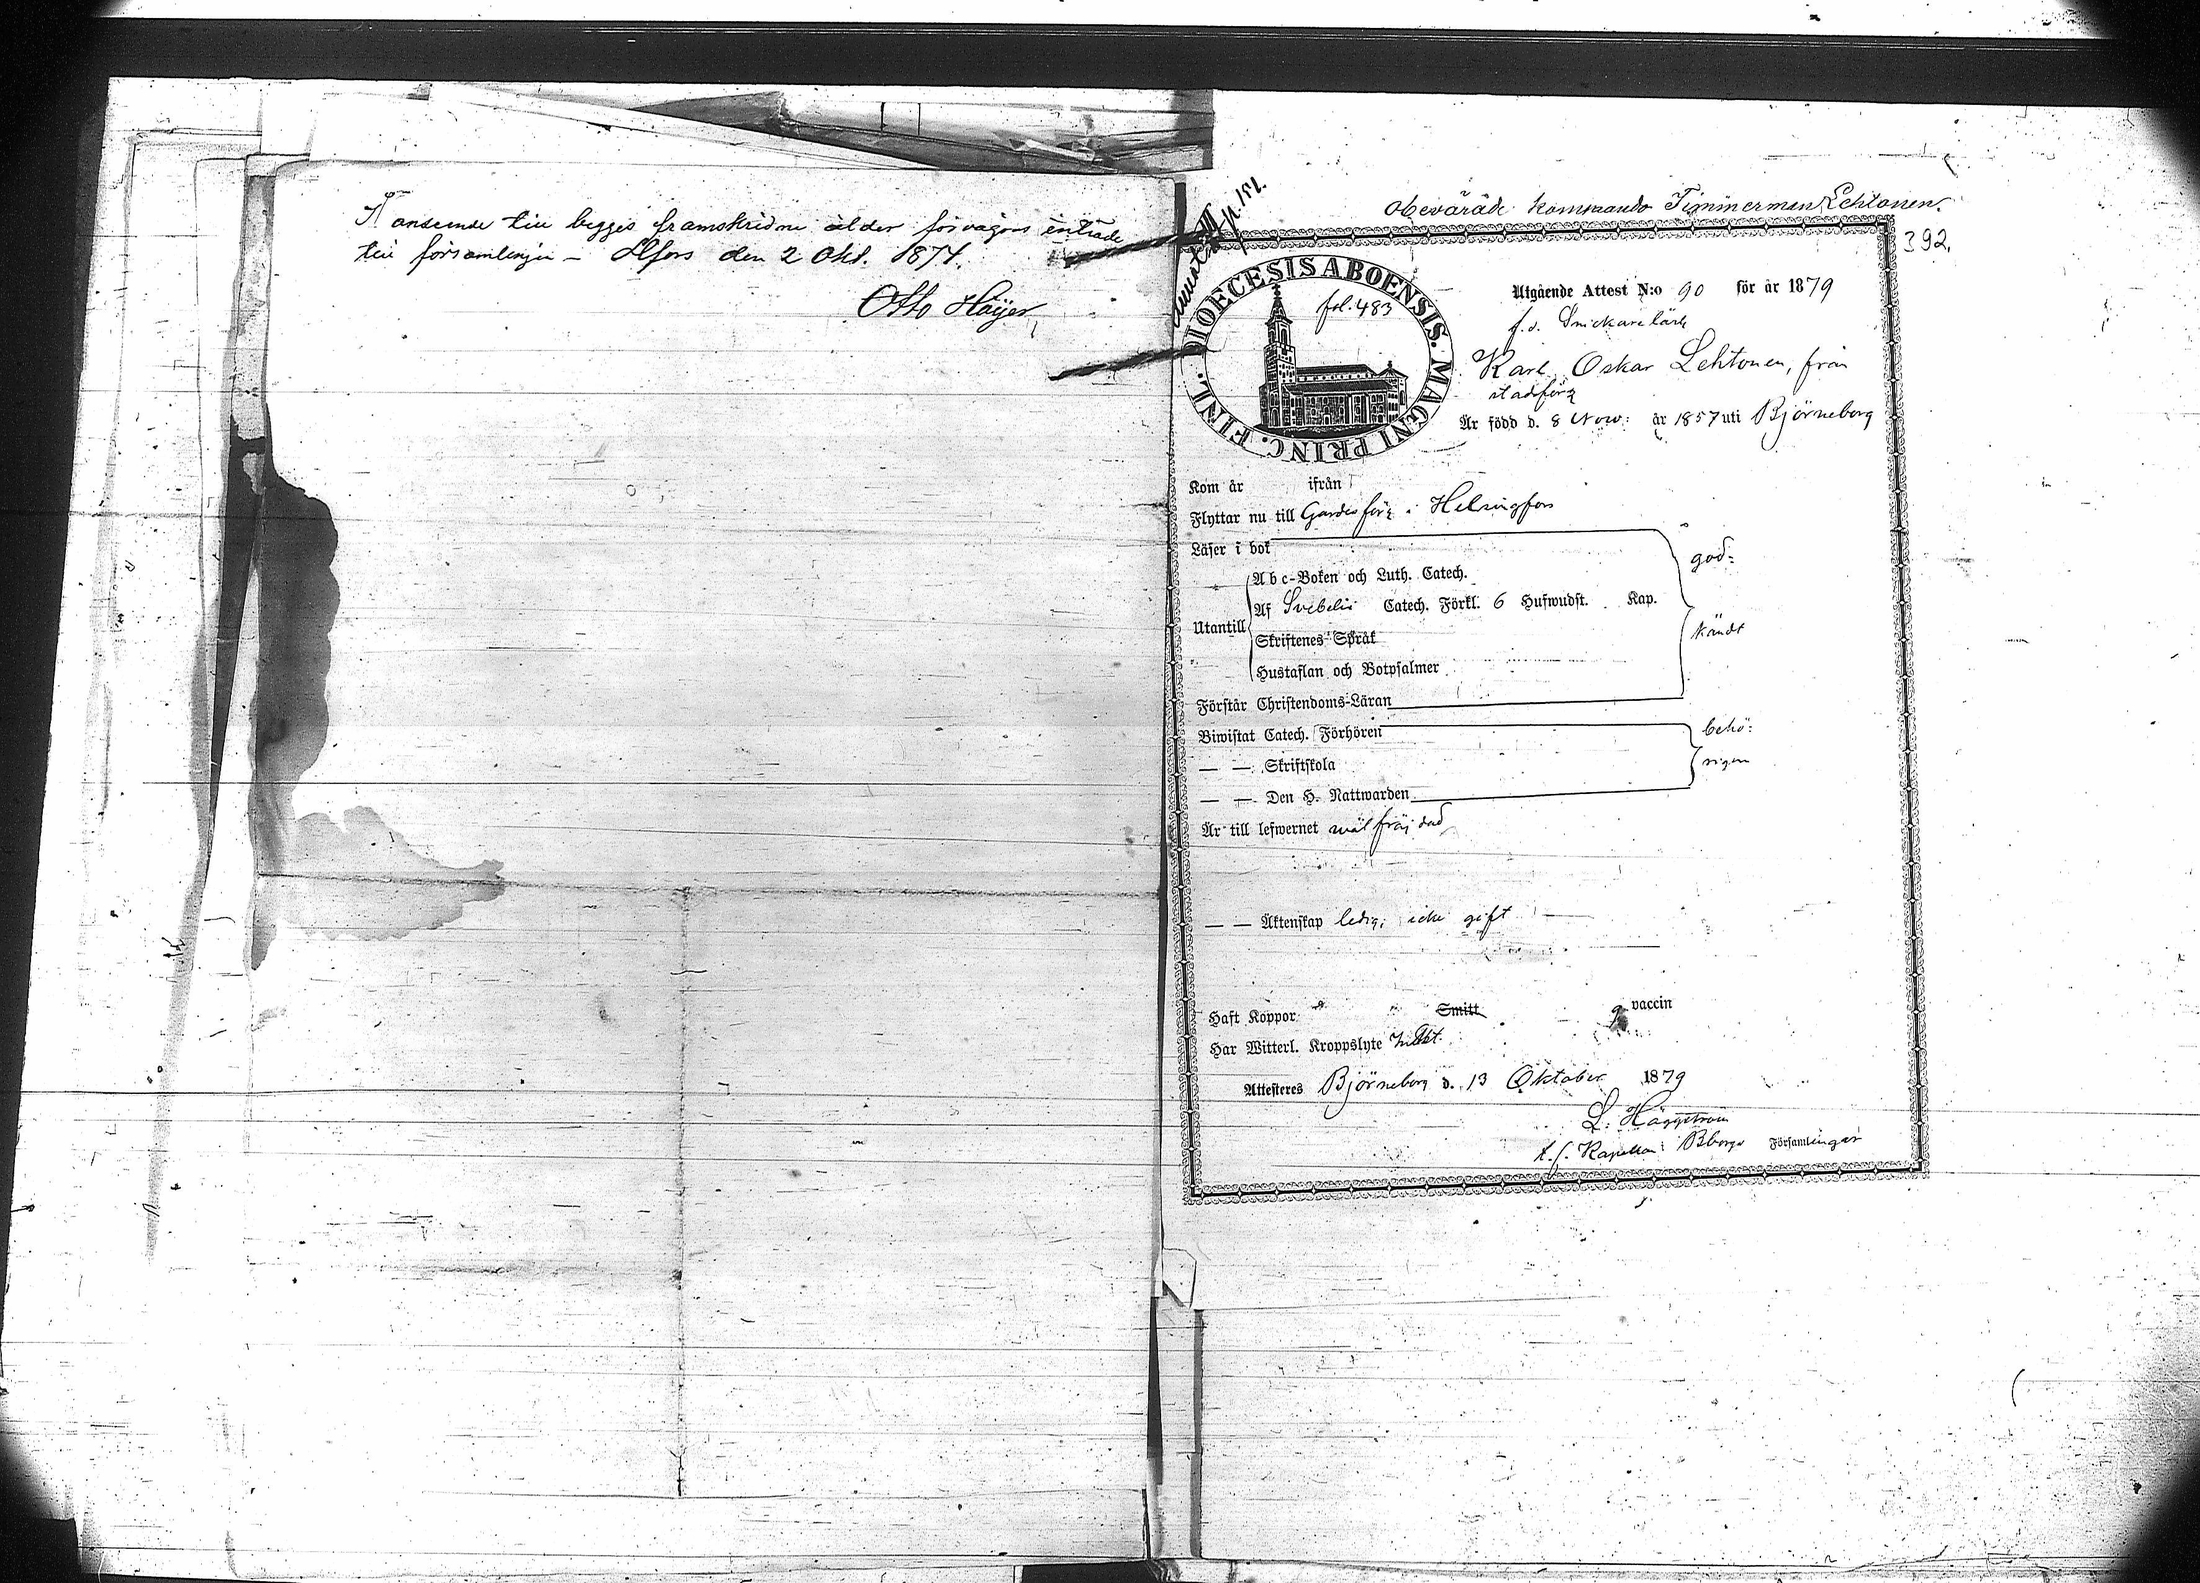 I anseende till begges framskridne ålder förvägras inträde
till församlingen – Hfors den 2 Okt. 1874.
Otto Häyer
p. 151.
Obeväräde kommando Timmerman Lehtonen.
392.
DIOECESIS ABOENSIS. MAGNI PRINC. FINL.
fol. 483
Utgående Attest N:o 90 för år 1879
f.d. Snickarelärl
Karl Oskar Lehtonen, från
stadsförs
Är född d. 8 Nov: år 1857 uti Björneborg
Kom år ifrån
Flyttar nu till Gardesförs i Helsingfors
Läser i bok
god:
Abc-Boken och Luth. Catech.
Af Svebelii Catech. Förkl. 6 Hufwudst. Kap.
Utantill
kändt
Skriftenes Språk
Hustaflan och Botpsalmer
Förstår Christendoms-Läran
Biwistat Catech. Förhören
behö:
— — Skriftskola
rigen
— — Den H. Nattwarden
Är till lefwernet wäl fräjdad
— — Äktenskap ledig, icke gift
Haft Koppor Smitt vaccin
Har Witterl. Kroppslyte
Attesteres Björneborg d. 13 Oktober 1879
L. Häggström
t.f. Kapellan i Bborgs Församlingar